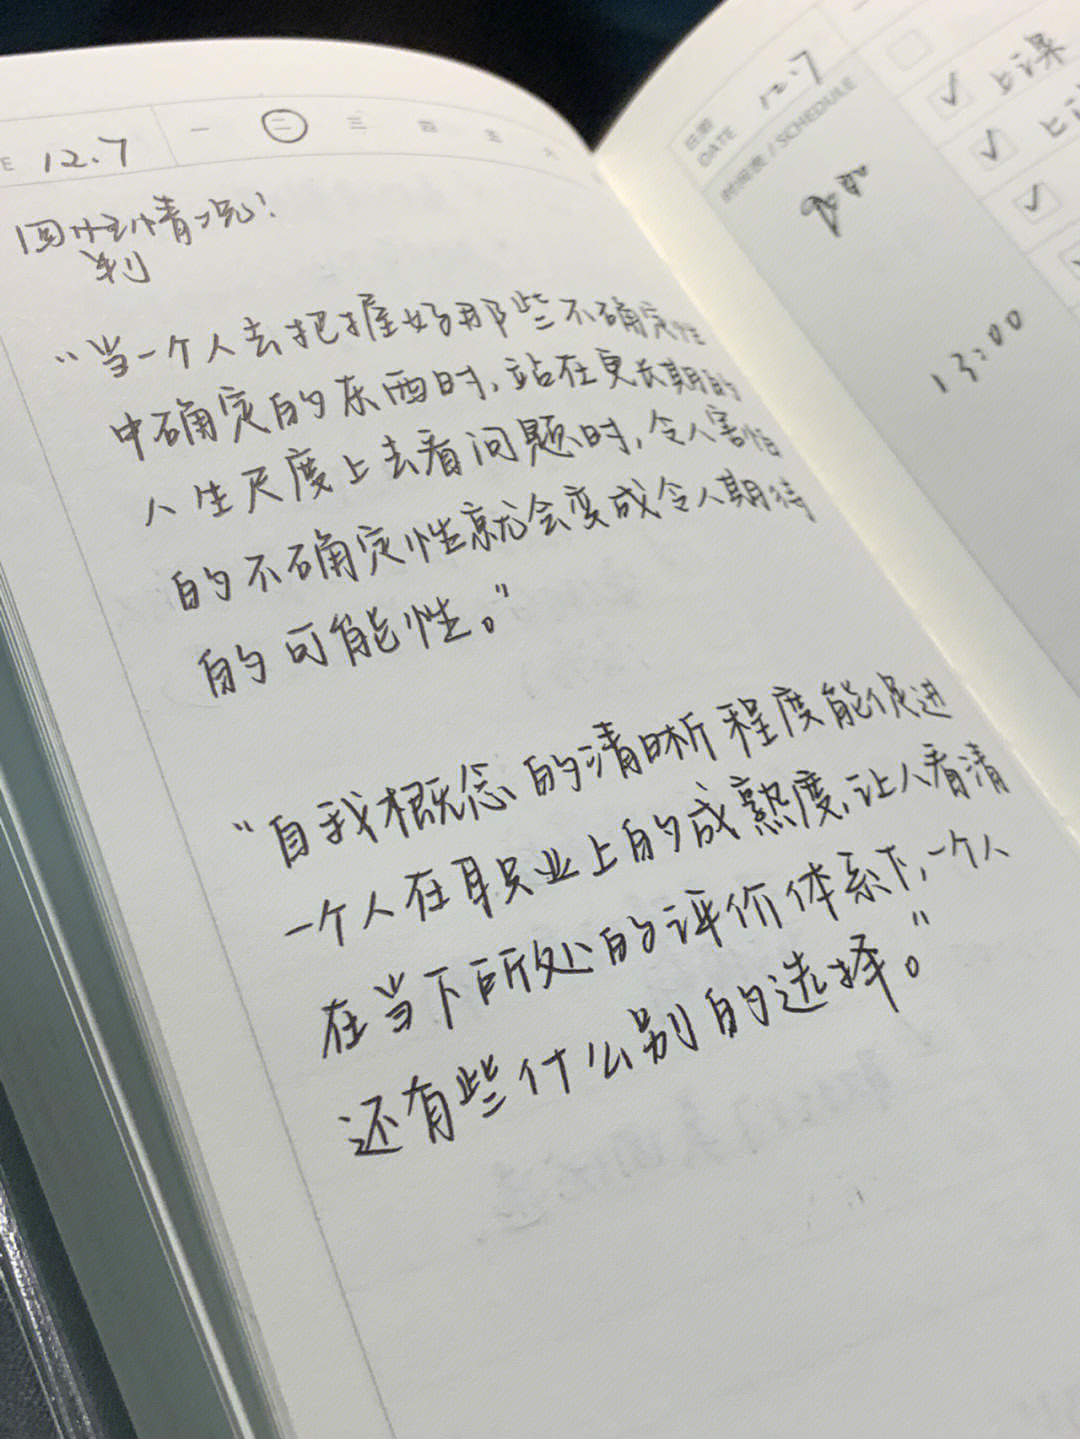 12.7 一 二 三 四 五 六
"当一个人去把握好那些不确定性
中确定的东西时,站在更长期的
人生尺度上去看问题时,令人害怕
的不确定性就会变成令人期待
的可能性。"
"自我概念的清晰程度能促进
一个人在职业上的成熟度,让人看清
在当下所处的评价体系下,一个人
还有些什么别的选择。"
日期
DATE 12.7
时间表/SCHEDULE
13:00
✓ 上课
✓ 上
✓